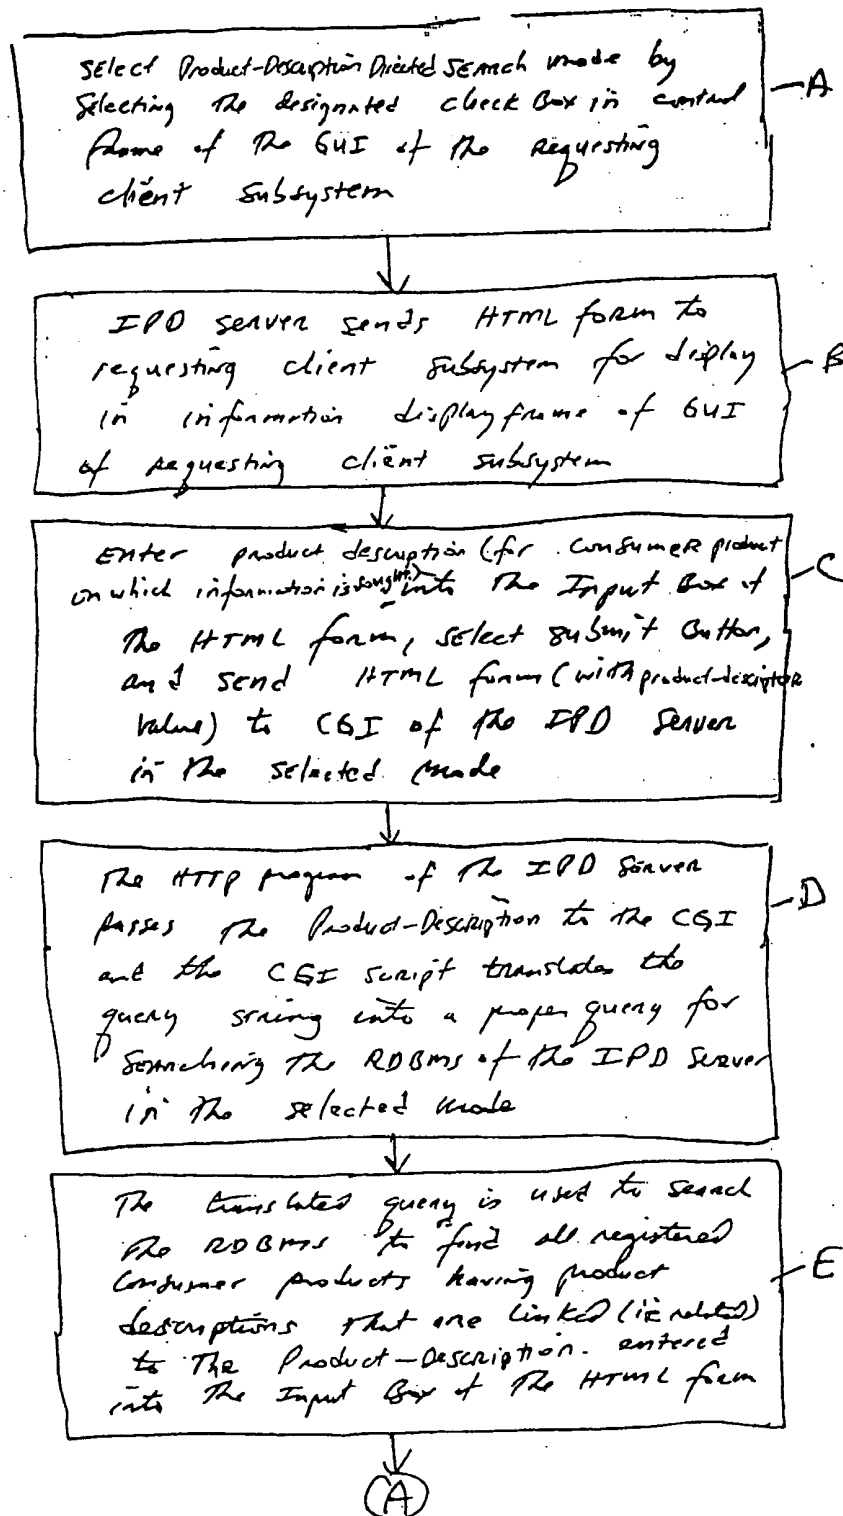 Select Product-Description Directed Search mode by
selecting the designated check Box in control
frame of the GUI of the requesting
client subsystem
A
IPD Server sends HTML form to
requesting client subsystem for display
in information display frame of GUI
of requesting client subsystem
B
Enter product description (for consumer product
on which information is sought) into the Input Box of
the HTML form, select submit Button,
and send HTML form (with product-descriptor
value) to CGI of the IPD Server
in the selected mode
C
The HTTP program of the IPD Server
passes the Product-Description to the CGI
and the CGI script translates the
query string into a proper query for
searching the RDBMS of the IPD Server
in the selected mode
D
The translated query is used to search
the RDBMS to find all registered
consumer products having product
descriptions that are linked (ie related)
to the Product-Description. entered
into the Input Box of the HTML form
E
A